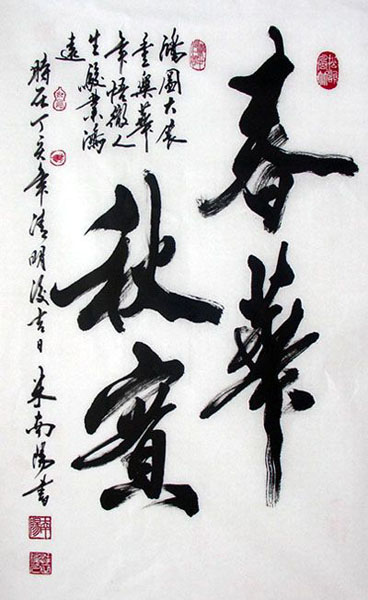 春華
秋實
鴻圖大展
重興華
年悟徹人
生駿業鴻
遠
時在丁亥年清明後吉日米南陽書